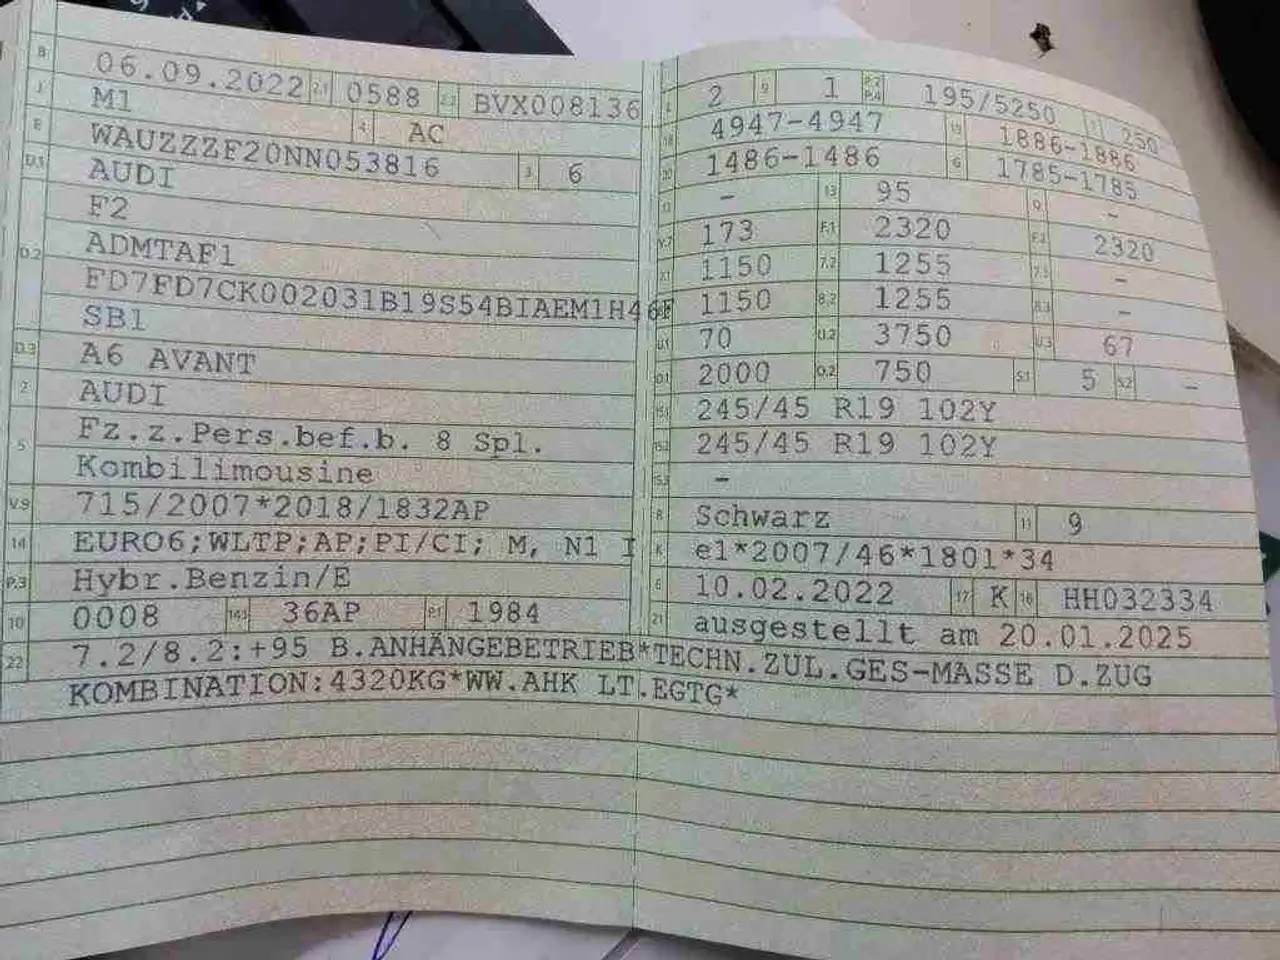 B 06.09.2022 2.1 0588 2.2 BVX008136
J M1 4 AC
E WAUZZZF20NN053816 3 6
D.1 AUDI
F2
D.2 ADMTAF1
FD7FD7CK002031B19S54BIAEM1H46F
SB1
D.3 A6 AVANT
2 AUDI
5 Fz.z.Pers.bef.b. 8 Spl.
Kombilimousine
V.9 715/2007*2018/1832AP
14 EURO6;WLTP;AP;PI/CI; M, N1 I
P.3 Hybr.Benzin/E
10 0008 14.1 36AP P.1 1984
L 2 9 1 P.2 P.4 195/5250 T 250
18 4947-4947 19 1886-1886
20 1486-1486 G 1785-1785
12 – 13 95 Q –
V.7 173 F.1 2320 F.2 2320
7.1 1150 7.2 1255 7.3 –
8.1 1150 8.2 1255 8.3 –
U.1 70 U.2 3750 U.3 67
O.1 2000 O.2 750 S.1 5 S.2 –
15.1 245/45 R19 102Y
15.2 245/45 R19 102Y
15.3 –
R Schwarz 11 9
K e1*2007/46*1801*34
6 10.02.2022 17 K 16 HH032334
21 ausgestellt am 20.01.2025
22 7.2/8.2:+95 B.ANHÄNGEBETRIEB*TECHN.ZUL.GES-MASSE D.ZUG
KOMBINATION:4320KG*WW.AHK LT.EGTG*